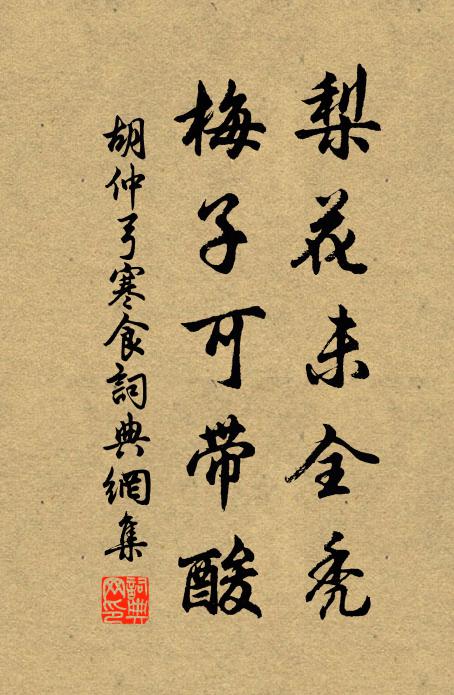 梨花未全秃
梅子可带酸
胡仲弓寒食詞典網集
詞典网印